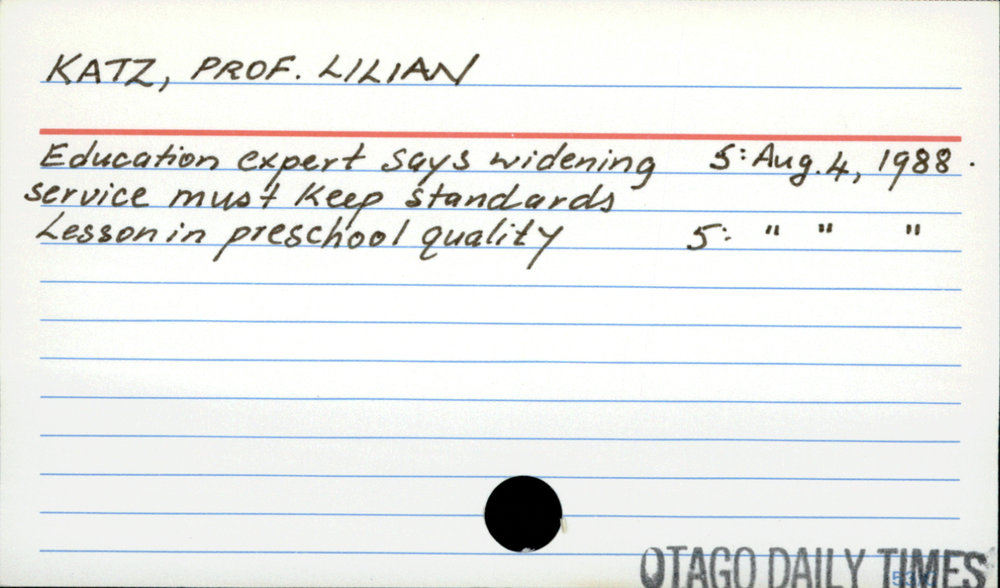 KATZ, PROF. LILIAN
Education expert says widening 5: Aug. 4, 1988.
service must keep standards
Lesson in preschool quality 5: " " "
OTAGO DAILY TIMES